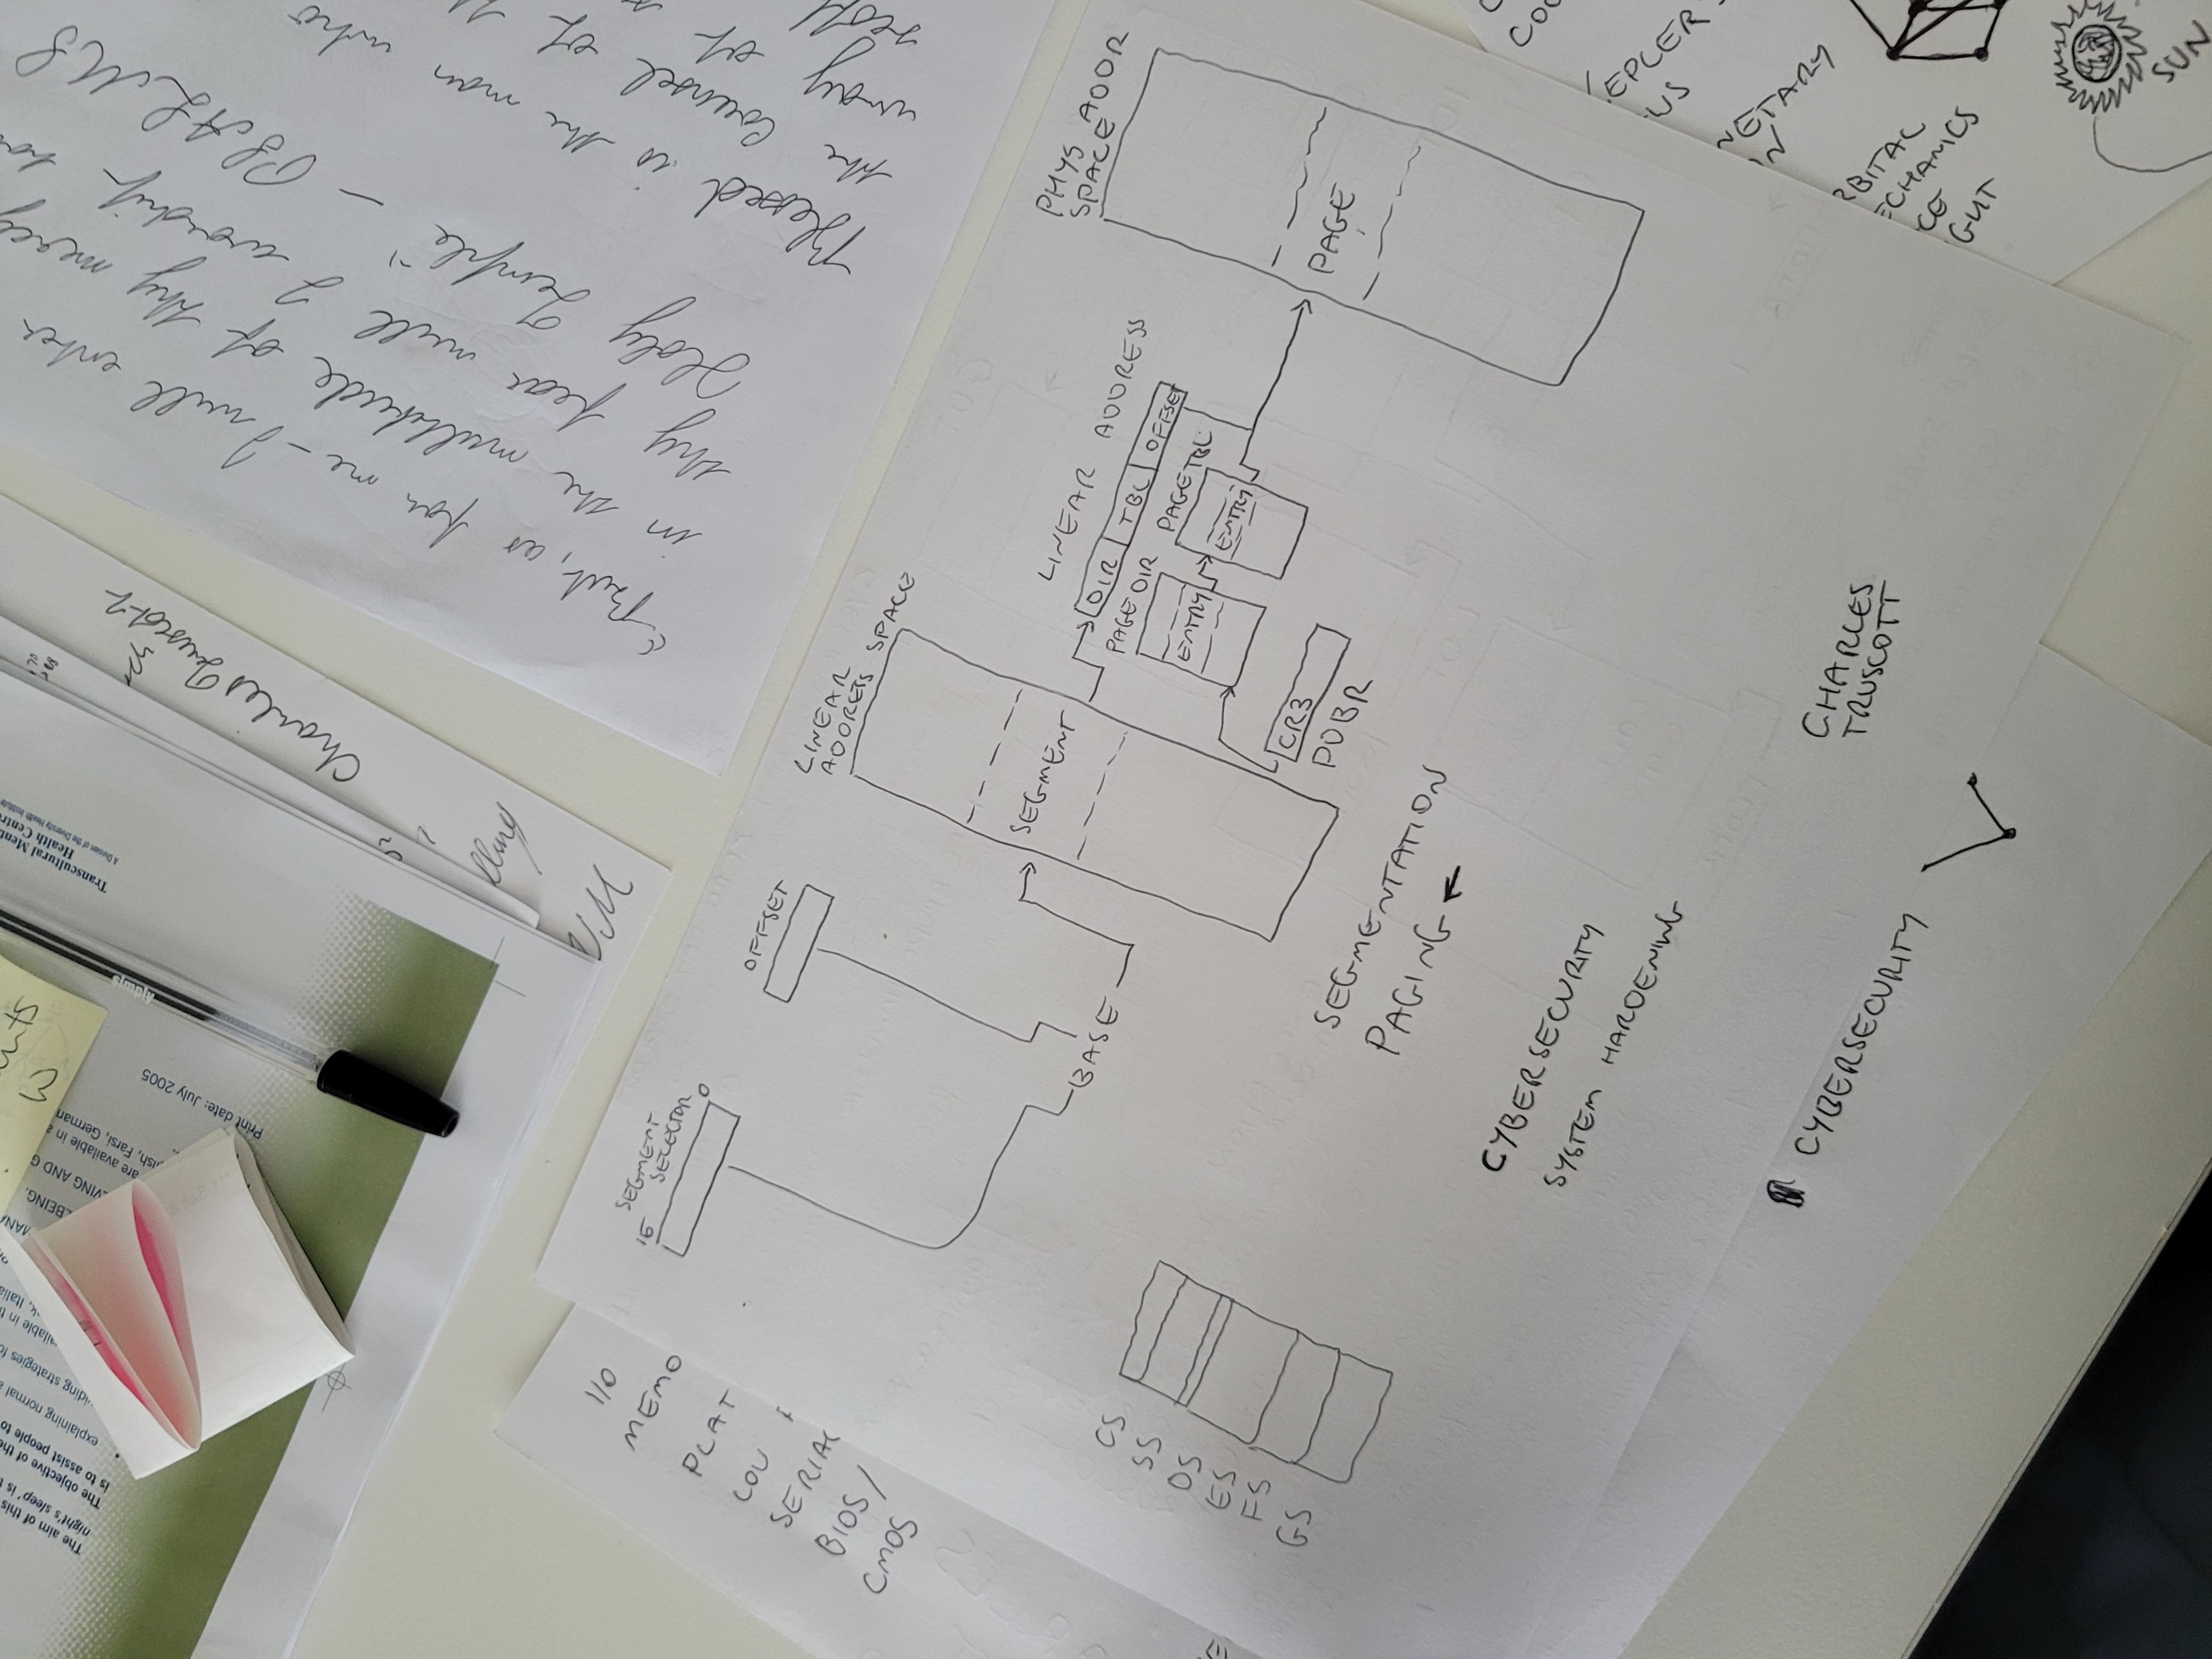 The aim of this
night's sleep' is t
The objective of the
is to assist people to
explaining normal a
iding strategies fo
ailable in t
LBEING.
VING AND G
are available in a
ish, Farsi, German
Print date: July 2005
Transcultural Ment
Health Centre
A Division of the Diversity Health Institute
Charles Truscott
V.M
"But, as for me - I will enter
in the multitude of thy mercy
thy fear will I worship
Holy Temple" - PSALMS
Blessed is the man who
the Counsel of
way of
I/O
MEMO
PLAT
LOW
SERIAL
BIOS/
CMOS
SEGMENT
SELECTOR
15 0
OFFSET
LINEAR
ADDRESS SPACE
SEGMENT
BASE
LINEAR ADDRESS
DIR TBL OFFSET
PAGE DIR
ENTRY
PAGE TBL
ENTRY
CR3
PDBR
PHYS ADDR
SPACE
PAGE
CS
SS
DS
ES
FS
GS
SEGMENTATION
PAGING ←
CYBERSECURITY
SYSTEM HARDENING
CYBERSECURITY
CHARLES
TRUSCOTT
COO
EPLER
WS
NETARY
RBITAL
ECHANICS
CE
GUT
SUN